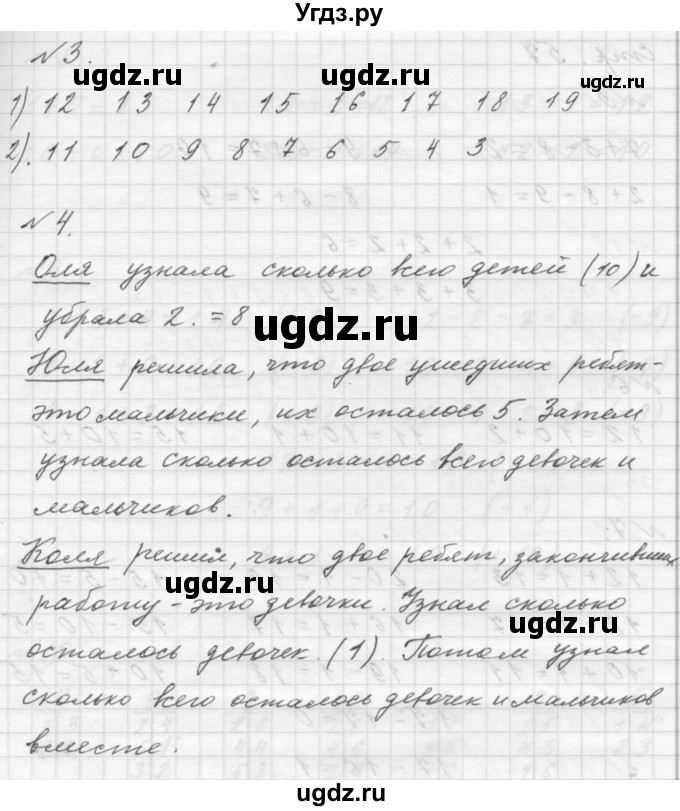 Угдз.ру
№3.
1) 12 13 14 15 16 17 18 19
2). 11 10 9 8 7 6 5 4 3
№4.
Оля узнала сколько всего детей (10) и
убрала 2. = 8
Юля решила, что двое ушедших ребят-
это мальчики, их осталось 5. Затем
узнала сколько осталось всего девочек и
мальчиков.
Коля решил, что двое ребят, закончивших
работу - это девочки. Узнал сколько
осталось девочек. (1). Потом узнал
сколько всего осталось девочек и мальчиков
вместе.
ugdz.ru
ugdz.ru
ugdz.ru
ugdz.ru
ugdz.ru
ugdz.ru
ugdz.ru
ugdz.ru
ugdz.ru